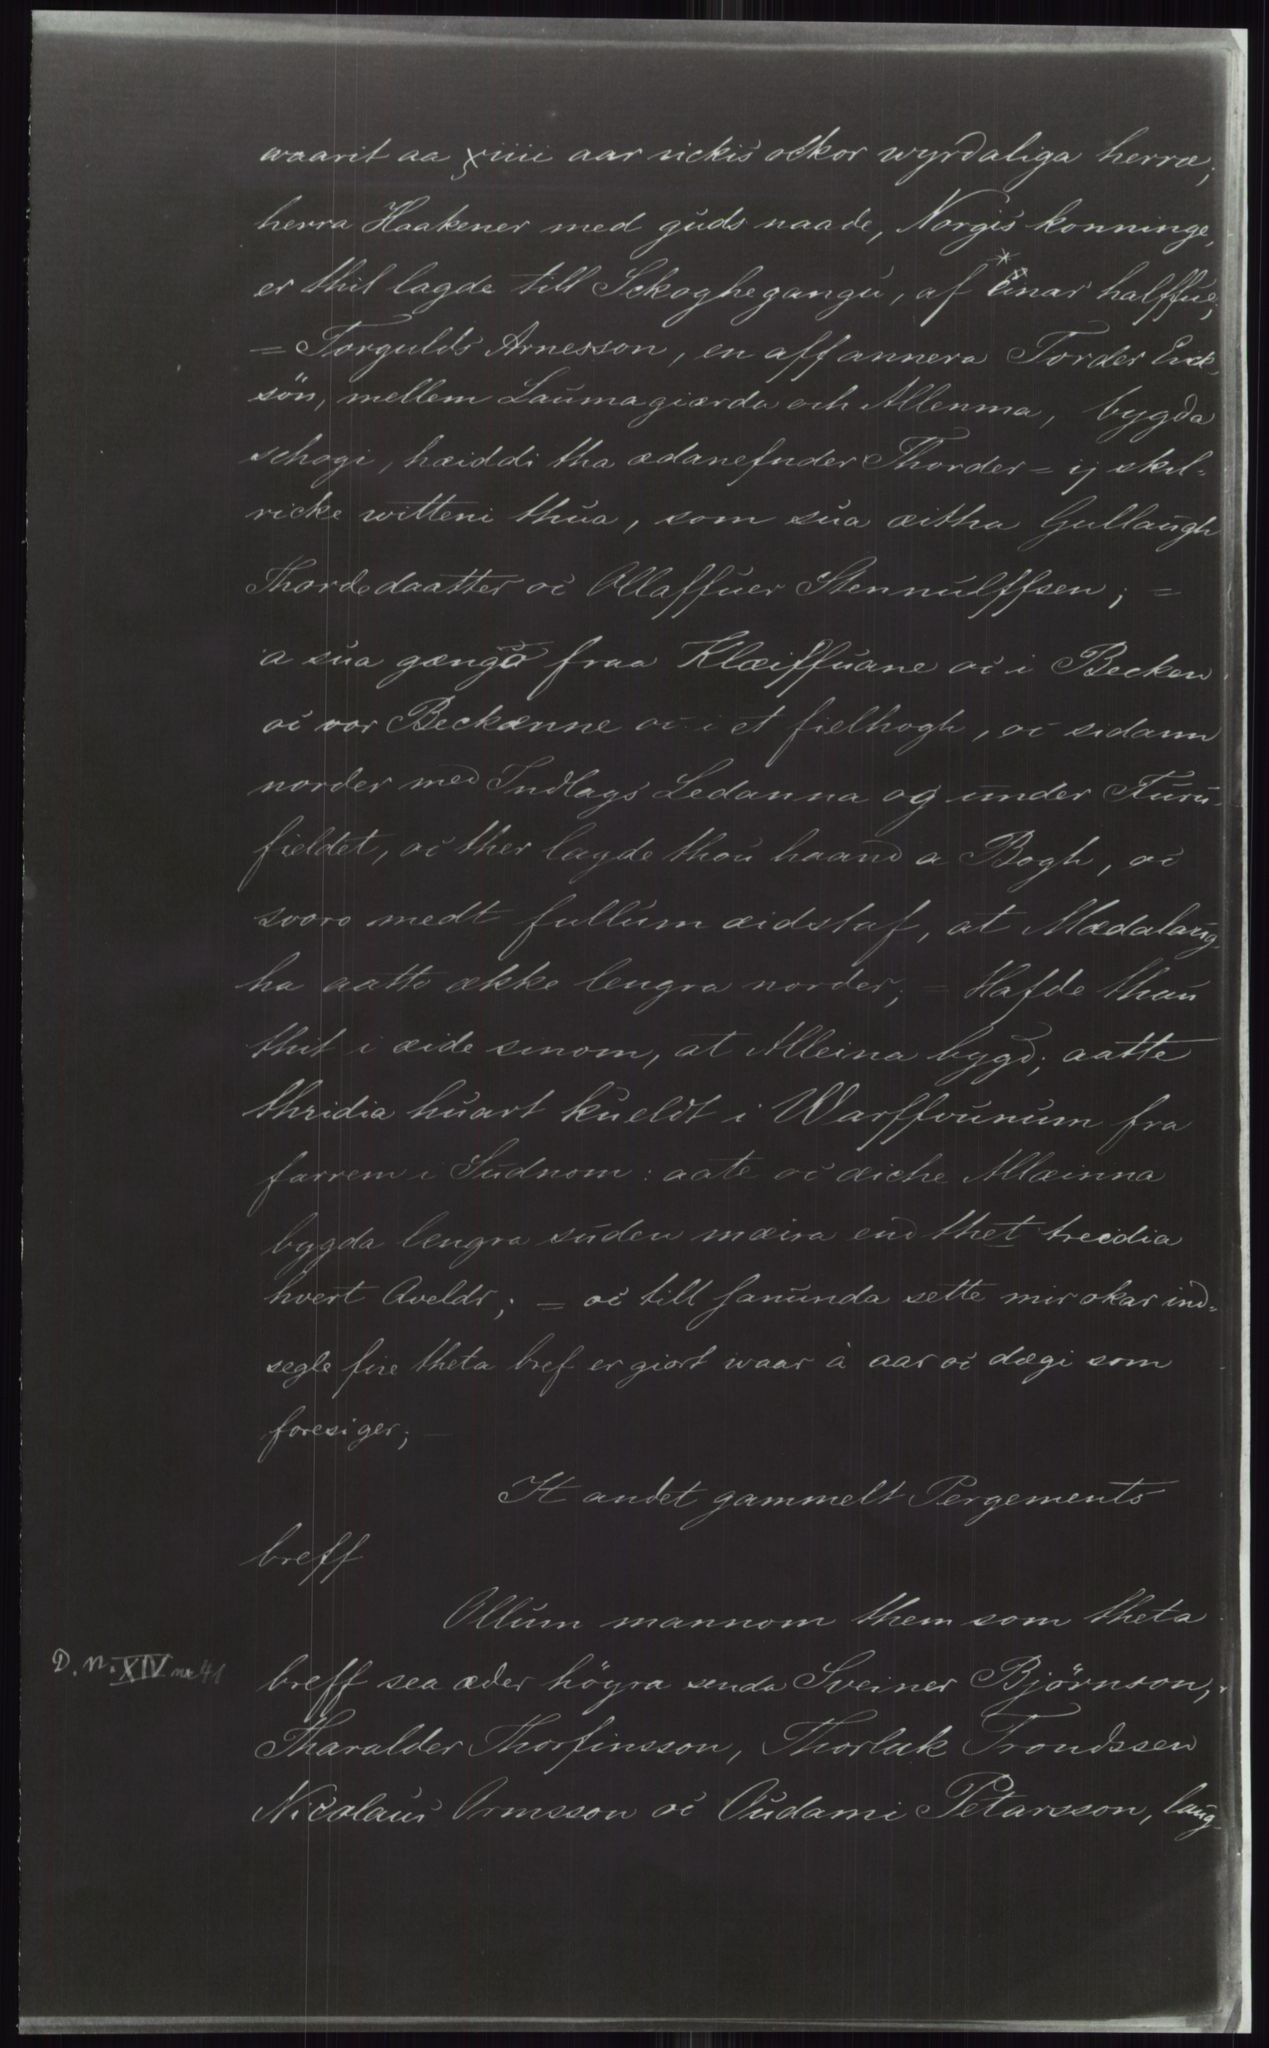 waarit aa xiiii aar rickis ockor wyrdaliga herræ,
herra Haakener med guds naade, Norgis konninge,
er thil lagde till Sckoghegangu, af Einar halffue,
= Torgulds Arnesson, en aff annera Torder Erick-
sön, mellem Laumagiærda och Allenma, bygda
schogi, hæiddi tha ædanefnder Thorder = ij skil-
ricke witteni thua, som sua æitha Gullaugh
Thordedaatter oc Ollaffuer Stennulffsen; =
a sua gængo fraa Klæiffuane oc i Becken
oc vor Beckænne oc i et fielhogh, oc sidann
norder med Indlags Ledanna og under Furu-
fieldet, oc ther lagde thou haand a Bogh, oc
svoro medt fullum æidstaf, at Mædalaug-
ha aatto ække lengra norder; = Hafde thau
thit i æide senom, at Alleina bygd; aatte
thridia huart kueldt i Warffuunum fra
farrem i Sudnom: aate oc æiche Allæinna
bygda lengra suden mæira end thet treidia
hvert Qveldr; = oc till sanunda sette mir okar ind-
segle fire theta bref er giort waar à aar oc dægi som
foresiger; —
It andet gammelt Pergements
breff
Ollum mannom them som theta
D. N. XIV nr 41
breff sea æder högra senda Sveiner Björnson,
Tharalder Thorfinsson, Thorluk Trondssen
Nicolaus Ormsson oc Oudami Petarsson, laug-